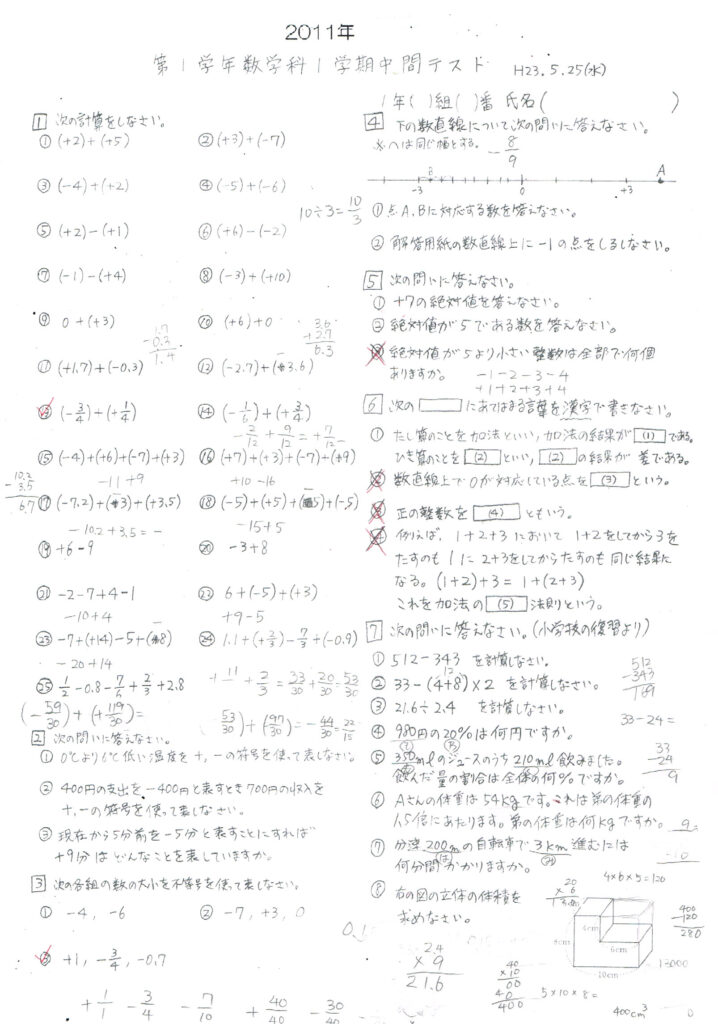 2011年
第1学年数学科1学期中間テスト H23.5.25(水)
1年( )組( )番 氏名( )
1 次の計算をしなさい。
① (+2)+(+5) ② (+3)+(-7)
③ (-4)+(+2) ④ (-5)+(-6)
10÷3=10/3
⑤ (+2)-(+1) ⑥ (+6)-(-2)
⑦ (-1)-(+4) ⑧ (-3)+(+10)
⑨ 0+(+3) ⑩ (+6)+0
1.7
-0.3
1.4
3.6
+2.7
6.3
⑪ (+1.7)+(-0.3) ⑫ (-2.7)+(-3.6)
⑬ (-3/4)+(+1/4) ⑭ (-1/6)+(+3/4)
-2/12 + 9/12 = +7/12
⑮ (-4)+(+6)+(-7)+(+3) ⑯ (+7)+(+3)+(-7)+(-9)
-11+9 +10-16
10.2
-3.5
6.7
⑰ (-7.2)+(-3)+(+3.5) ⑱ (-5)+(+5)+(-5)+(-5)
-10.2+3.5=- -15+5
⑲ +6-9 ⑳ -3+8
㉑ -2-7+4-1 ㉒ 6+(-5)+(+3)
-10+4 +9-5
㉓ -7+(+14)-5+(-8) ㉔ 1.1+(+2/3)-7/3+(-0.9)
-20+14
㉕ 1/2-0.8-7/6+2/3+2.8
+11 + 2/3 = 33/30 + 20/30 = 53/30
(-59/30)+(+119/30)=
53/30+(97/30)=-44/30=22/15
2 次の問いに答えなさい。
① 0℃より6℃低い温度を+,-の符号を使って表しなさい。
② 400円の支出を-400円と表すとき700円の収入を
+,-の符号を使って表しなさい。
③ 現在から5分前を-5分と表すことにすれば
+9分はどんなことを表していますか。
3 次の各組の数の大小を不等号を使って表しなさい。
① -4, -6 ② -7, +3, 0
③ +1, -3/4, -0.7
+1/1 -3/4 -7/10 +40/40 -30/40
4 下の数直線について次の問いに答えなさい。
※へは同じ幅とする。
-8/9
B A
-3 0 +3
① 点A,Bに対応する数を答えなさい。
② 解答用紙の数直線上に-1の点をしるしなさい。
5 次の問いに答えなさい。
① +7の絶対値を答えなさい。
② 絶対値が5である数を答えなさい。
③ 絶対値が5より小さい整数は全部で何個
ありますか。
-1-2-3-4
+1+2+3+4
6 次の□にあてはまる言葉を漢字で書きなさい。
① たし算のことを加法といい,加法の結果が(1)である。
ひき算のことを(2)といい,(2)の結果が差である。
② 数直線上で0が対応している点を(3)という。
③ 正の整数を(4)ともいう。
④ 例えば、1+2+3において 1+2をしてから3を
たすのも1に2+3をしてからたすのも同じ結果に
なる。(1+2)+3=1+(2+3)
これを加法の(5)法則という。
7 次の問いに答えなさい。(小学校の復習より)
① 512-343 を計算しなさい。
512
-343
189
12
② 33-(4+8)×2 を計算しなさい。
③ 21.6÷2.4 を計算しなさい。
33-24=
④ 980円の20%は何円ですか。
⑤ 350mlのジュースのうち210ml飲みました。
飲んだ量の割合は全体の何%ですか。
33
-24
9
⑥ Aさんの体重は54kgです。これは弟の体重の
1.5倍にあたります。弟の体重は何kgですか。
⑦ 分速200mの自転車で3km進むには
何分間かかりますか。
⑧ 右の図の立体の体積を
求めなさい。
20
×6
4×6×5=120
400
-120
280
4cm
6cm
8cm
10cm
13000
24
×9
21.6
40
×10
00
40
400
5×10×8=
400cm³